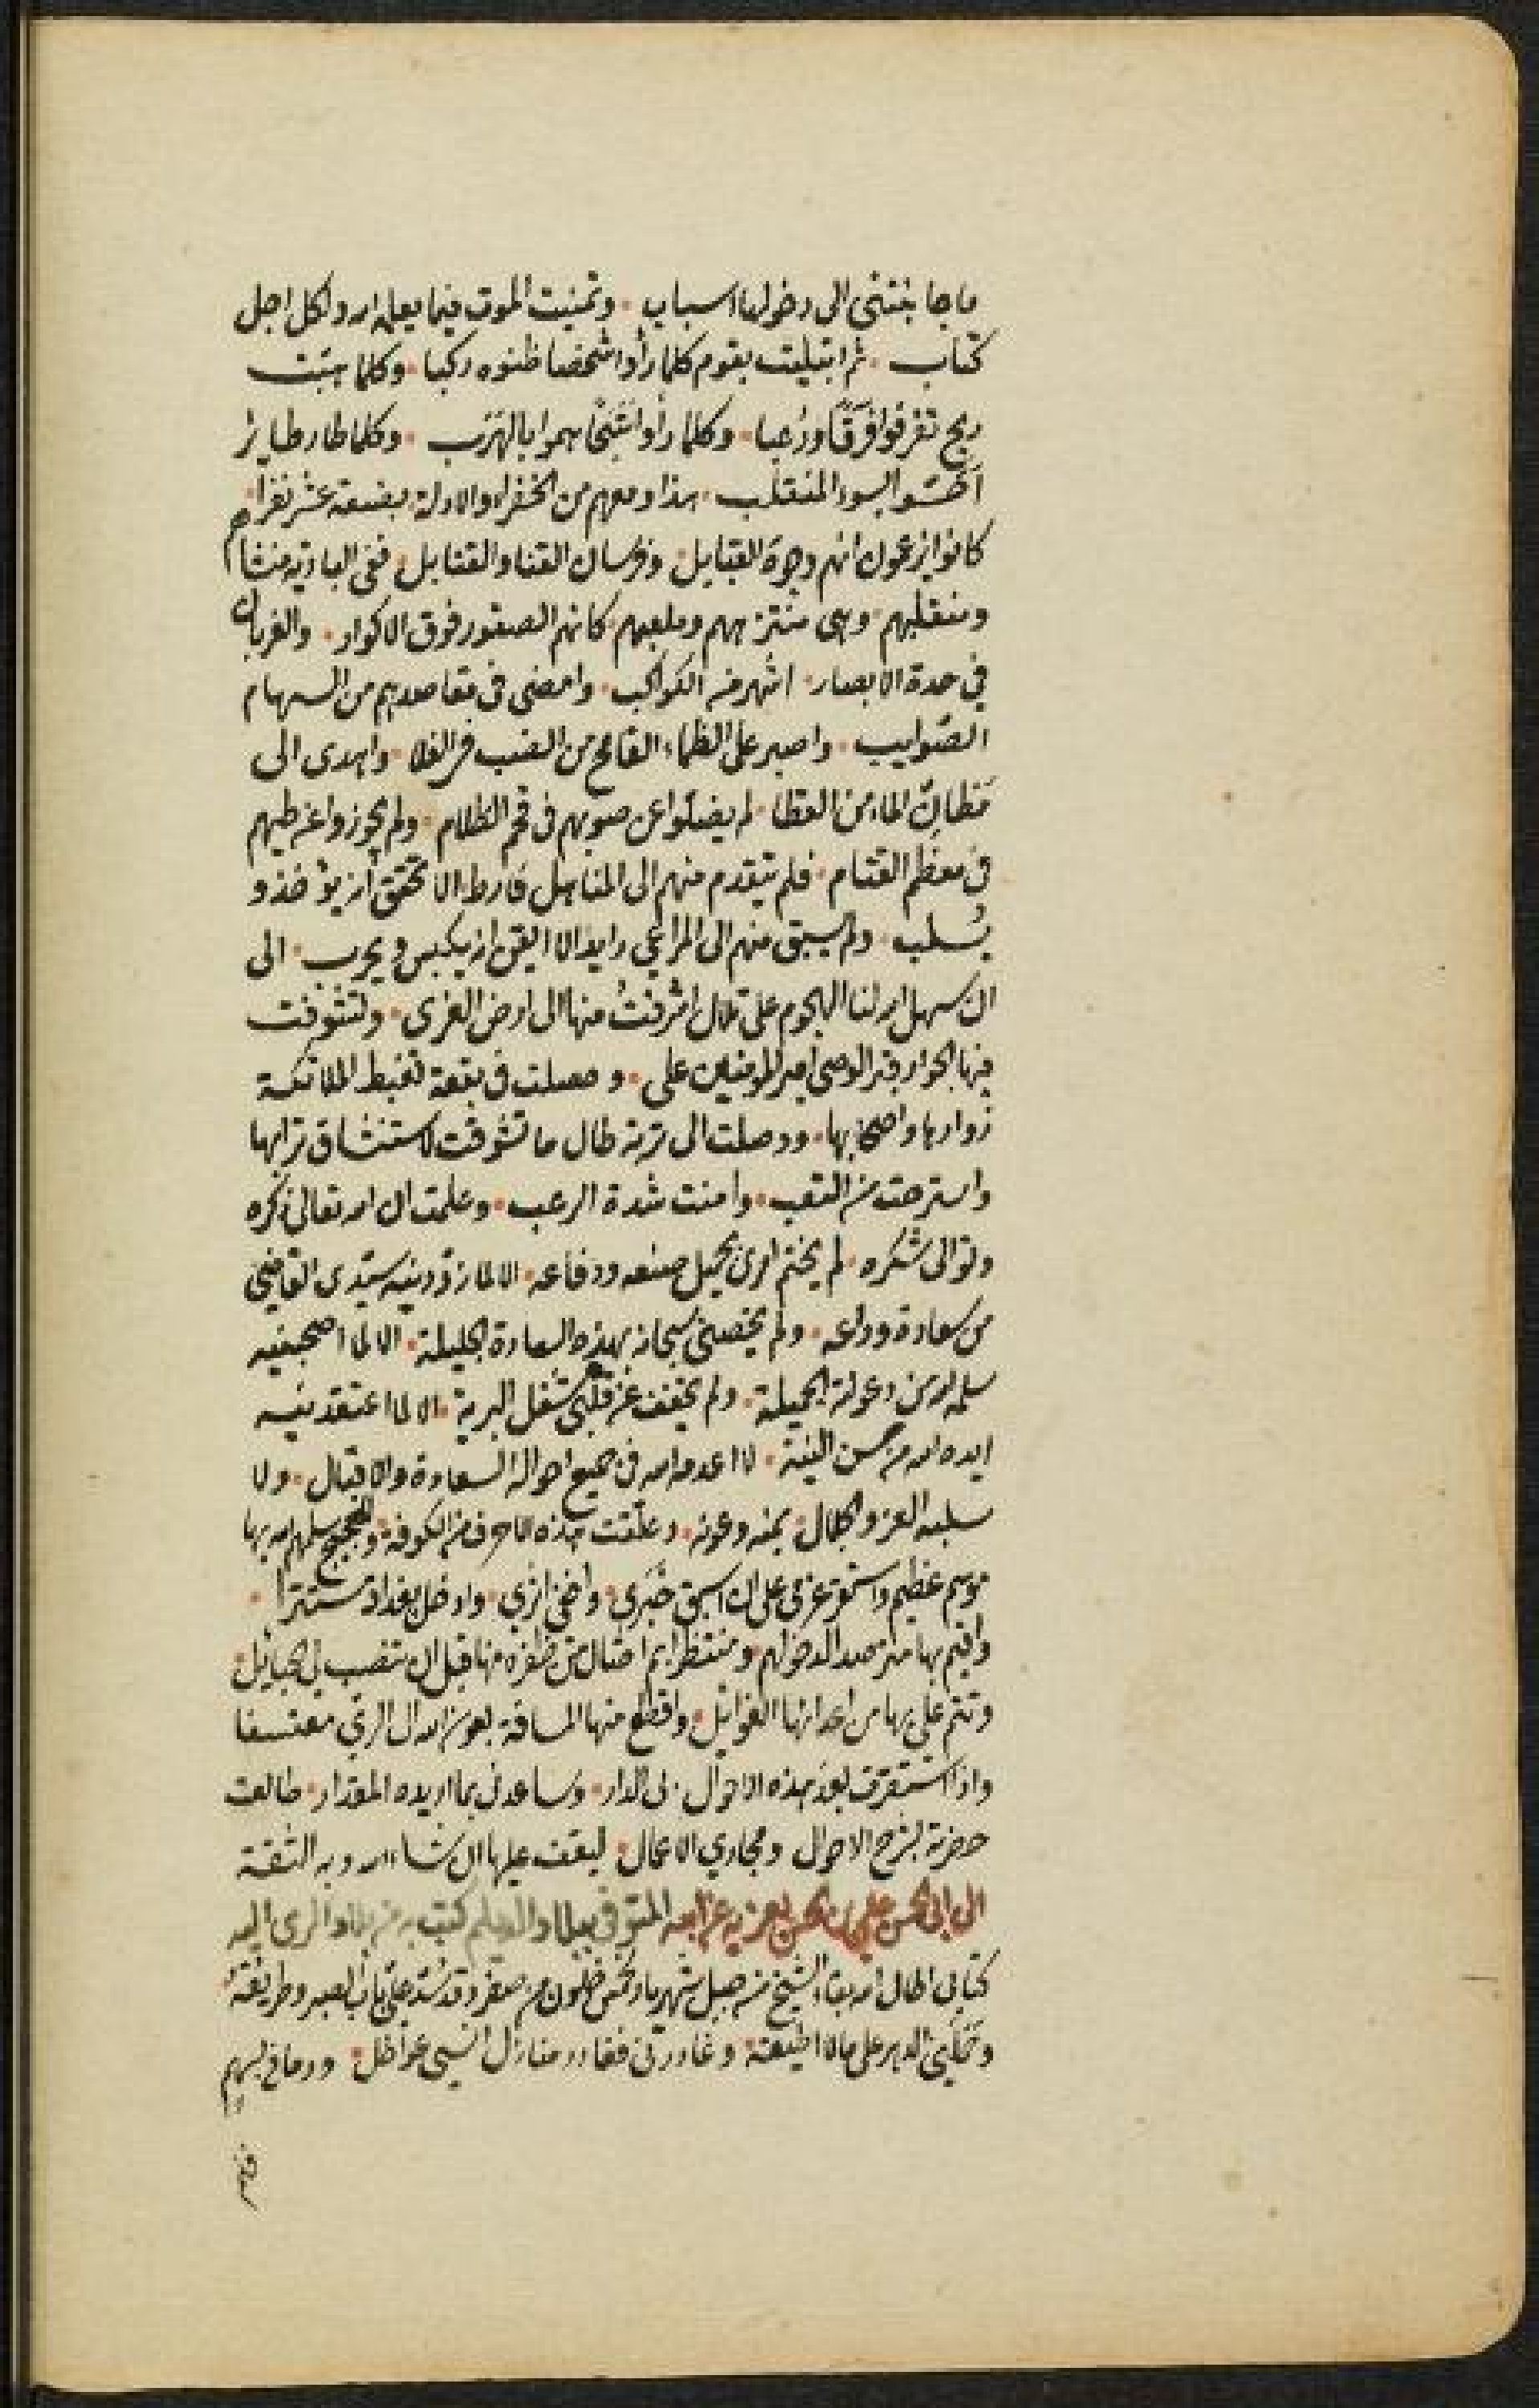 ما جا بنتني الى دخولها اسباب . وتمنيت الموت فيما يعلم الله ولكل اجل
كتاب . ثم ابتليت بقوم كلما رأوا شخصا ظنوه ركبا . وكلما هبت
ريح تفرقوا فرقًا ورُعبا . وكلما رأوا شبحًا هموا بالهرَب . وكلما طار طاير
احسّوا بسوء المنقلب . هذا ومعهم من الخفراء والادلة بضعة عشر نفرا .
كانوا يزعمون انهم وجوه القبايل . وفرسان القنا والقنابل . ففي البادية منشأهم
ومنقلبهم . وهى منتزههم وملعبهم . كانهم الصقور فوق الاكوار . والغربان
في حدة الابصار . اشهر من الكواكب . وامضى فى مقاصدهم من السهام
الصّوايب . واصبر على الظماء القامح من الضب في الفلا . واهدى الى
مَظانّ الماء من القطا . لم يضلّوا عن صوبهم فى فحم الظلام . ولم يجوزوا عن طيهم
فى معظم القتام . فلم يتقدم منهم الى المناهل فارط الا تحقق أنه يؤخذ و
يُسلب . ولم يسبق منهم الى المراعي رايد الا ايقن انه يكبس ويحرب . الى
ان سهل الله لنا الهجوم على تلال اشرفتُ منها الى ارض الغرى . وتشوفت
فيها لجوار قبر الوصي امير المومنين على . وحصلت فى بقعة تغبط الملائكة
زوارها واصحابها . ووصلت الى تربة طال ما تشوقت لاستنشاق ترابها
واسترحت من التعب . وامنت شدة الرعب . وعلمت ان الله تعالى ذكره
وتوالى شكره . لم يختم امرى بجميل صنعه ودفاعه . الا لما زودنيه سيدى القاضي
من سعادة وداعه . ولم يخصني سبحانه بهذه السعادة الجليلة . الا لما اصحبنيه
سلمه الله من دعواته الجميلة . ولم يخفف عن قلبى شغل البرية . الا لما اعتقد نيه
ايده الله من حسن النية . لا اعدمه الله فى جميع احواله السعادة والاقبال . ولا
سلبه العز والجلال . بمنه وعونه . وعلّقت هذه الاحرف من الكوفة وللحجيج سلمهم الله بها
موسم عظيم واستمر عزمى على ان اسبق خبَرى . واخفى اثري . وادخل بغداد مستترا .
واقيم بها مترصدا لدخولهم . ومنتظرا احتال من طفره منها قبل ان تنصب لى الحبايل .
وتتم على بها من احداثها الغوايل . واقطع منها المسافة بعون الله الى الري معتسفا
واذا استقرت بعد هذه الاحوال . بى الدار . وساعدنى بما اريده المقدار . طالعت
حضرته بشرح الاحوال ومجاري الاعمال . ليقف عليها ان شاء الله وبه الثقة
الى ابى الحسن على بن الحسن يعزيه عن ابيه المتوفى ببلاد الديلم كتب به من بلاد الرى اليه
كتابى اطال الله بقاء الشيخ من جبل شهريار لخمس خلون من صفر وقد سُدّ عليّ باب الصبر وطريقة .
وحَمّلني الدهر على ما لا اطيقه . وغادرتى فغادر منازل انسي عواطل . ورماني بسهم